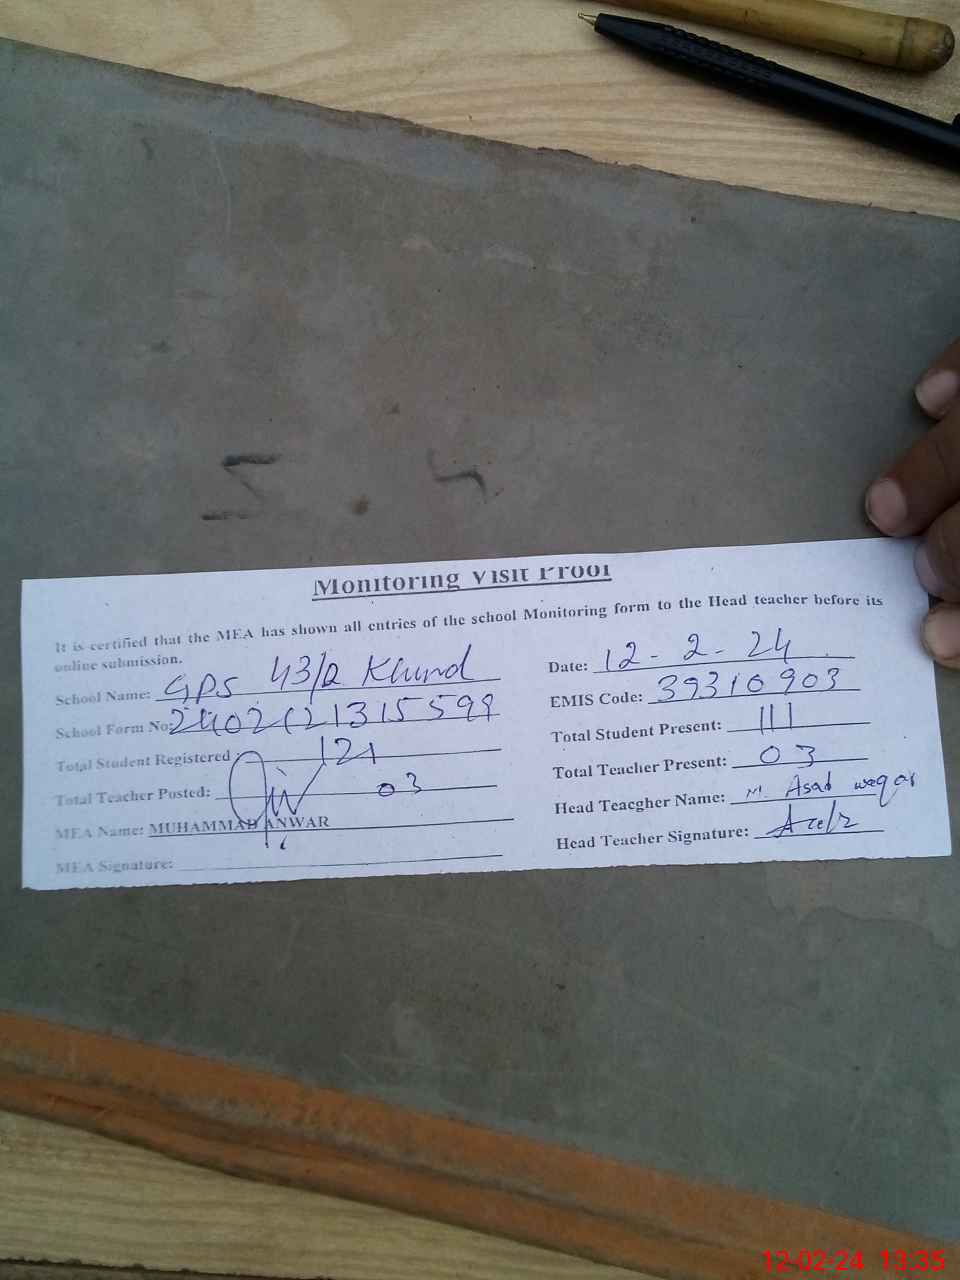 Monitoring Visit Proof
It is certified that the MEA has shown all entries of the school Monitoring form to the Head teacher before its
online submission.
School Name: GPS 43/2 Khund
Date: 12-2-24
School Form No:
EMIS Code: 39310903
Total Student Registered: 121
Total Student Present: 111
Total Teacher Posted: 03
Total Teacher Present: 03
MEA Name: MUHAMMAD ANWAR
Head Teacgher Name: M. Asad waqar
MEA Signature:
Head Teacher Signature:
12-02-24 13:35